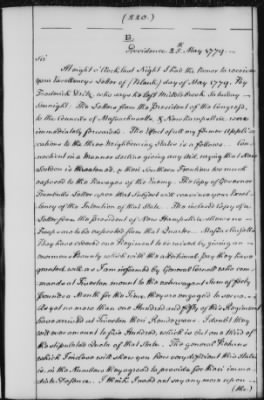 (220.)
B
Providence 25th May 1779
Sir
At eight o'Clock last Night I had the honor to receive
your Excellencys Letter of (blank) day of May 1779. By
Frederick who says he left Middlebrook Saturday
Sennight. The Letters from the President of the Congress,
to the Councils of Massachusetts & New Hampshire were
immediately forwarded. The effect of all my former applications
to the three Neighbouring States is as follows. Connecticut
in a manner declines giving any aid, saying that New
London is threatened, & their Southern Frontiers are much
exposed to the Ravages of the Enemy. The Copy of Governor
Trumbulls Letter upon that Subject will convince your Excellency
of the Intention of that State. The inclosed Copy of a
Letter from the president of New Hampshire shews no
Troops are to be expected from that Quarter. Massachusetts
They have ordered one Regiment to be raised by giving an
enormous Bounty which with the additional pay they have
granted, will as I am informed by General Cornell who commands
at Tiverton amount to the extravagant Sum of forty
pounds a Month for the Time they are engaged to serve.
As yet no more than One Hundred and fifty of this Regiment
have arrived at Tiverton their Rendezvous. I doubt they
will ever amount to five Hundred, which is but one third of
the stipulated Quota of that State. The general Return
which I inclose will shew you how very deficient this State
is, in the Numbers they agreed to provide for their immediate
Defence. I think I need not say any more upon
the